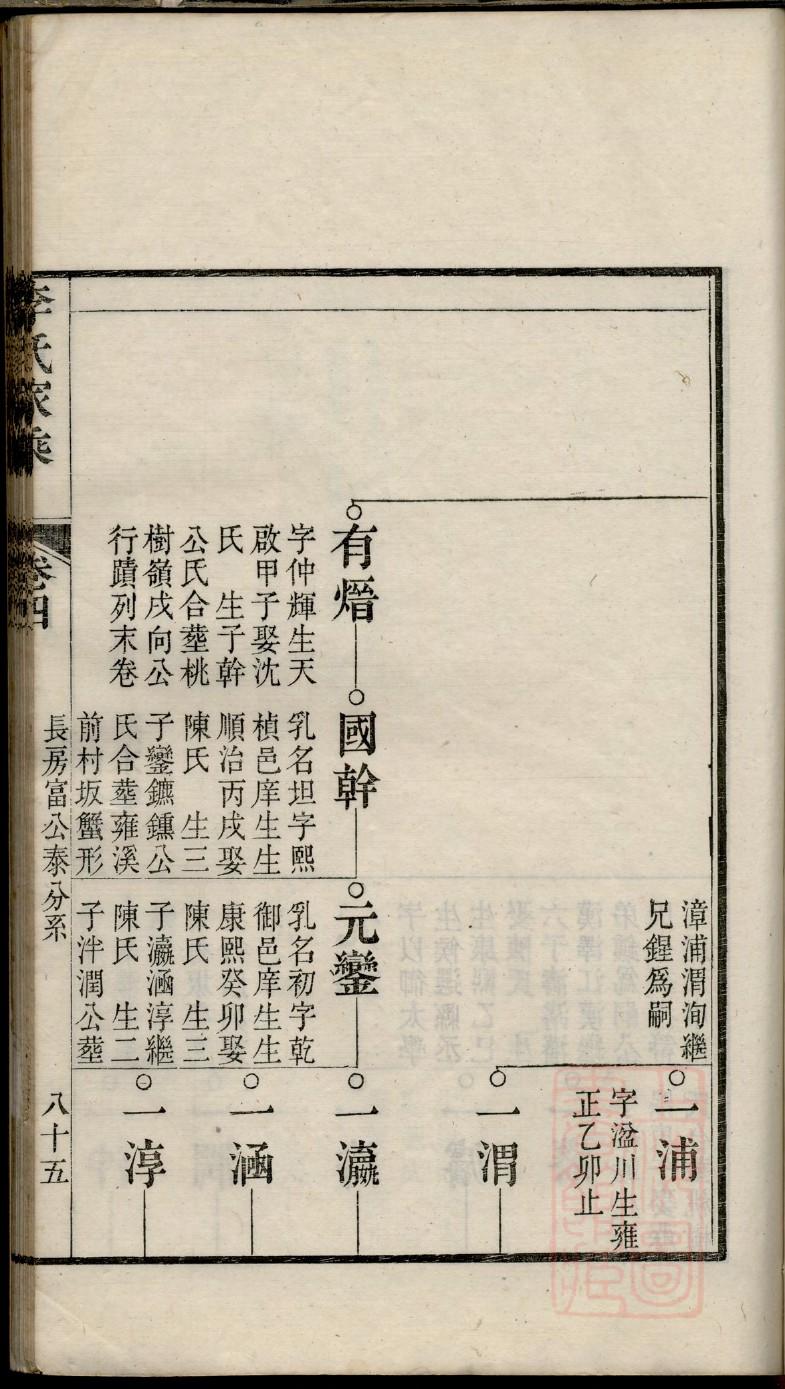 漳浦渭洵繼
兄鍟為嗣
一浦
字湓川生雍
正乙卯止
一渭
有熸
字仲輝生天
啟甲子娶沈
氏　生子幹
公氏合塟桃
樹嶺戌向公
行蹟列末卷
國幹
乳名坦字熙
楨邑庠生生
順治丙戌娶
陳氏　生三
子鑾鑣鑂公
氏合塟雍溪
前村坂蟹形
元鑾
乳名初字乾
御邑庠生生
康熙癸卯娶
陳氏　生三
子瀛涵淳繼
陳氏　生二
子泮潤公塟
一瀛
一涵
一淳
李氏家乘
卷四
長房富公泰分系
八十五